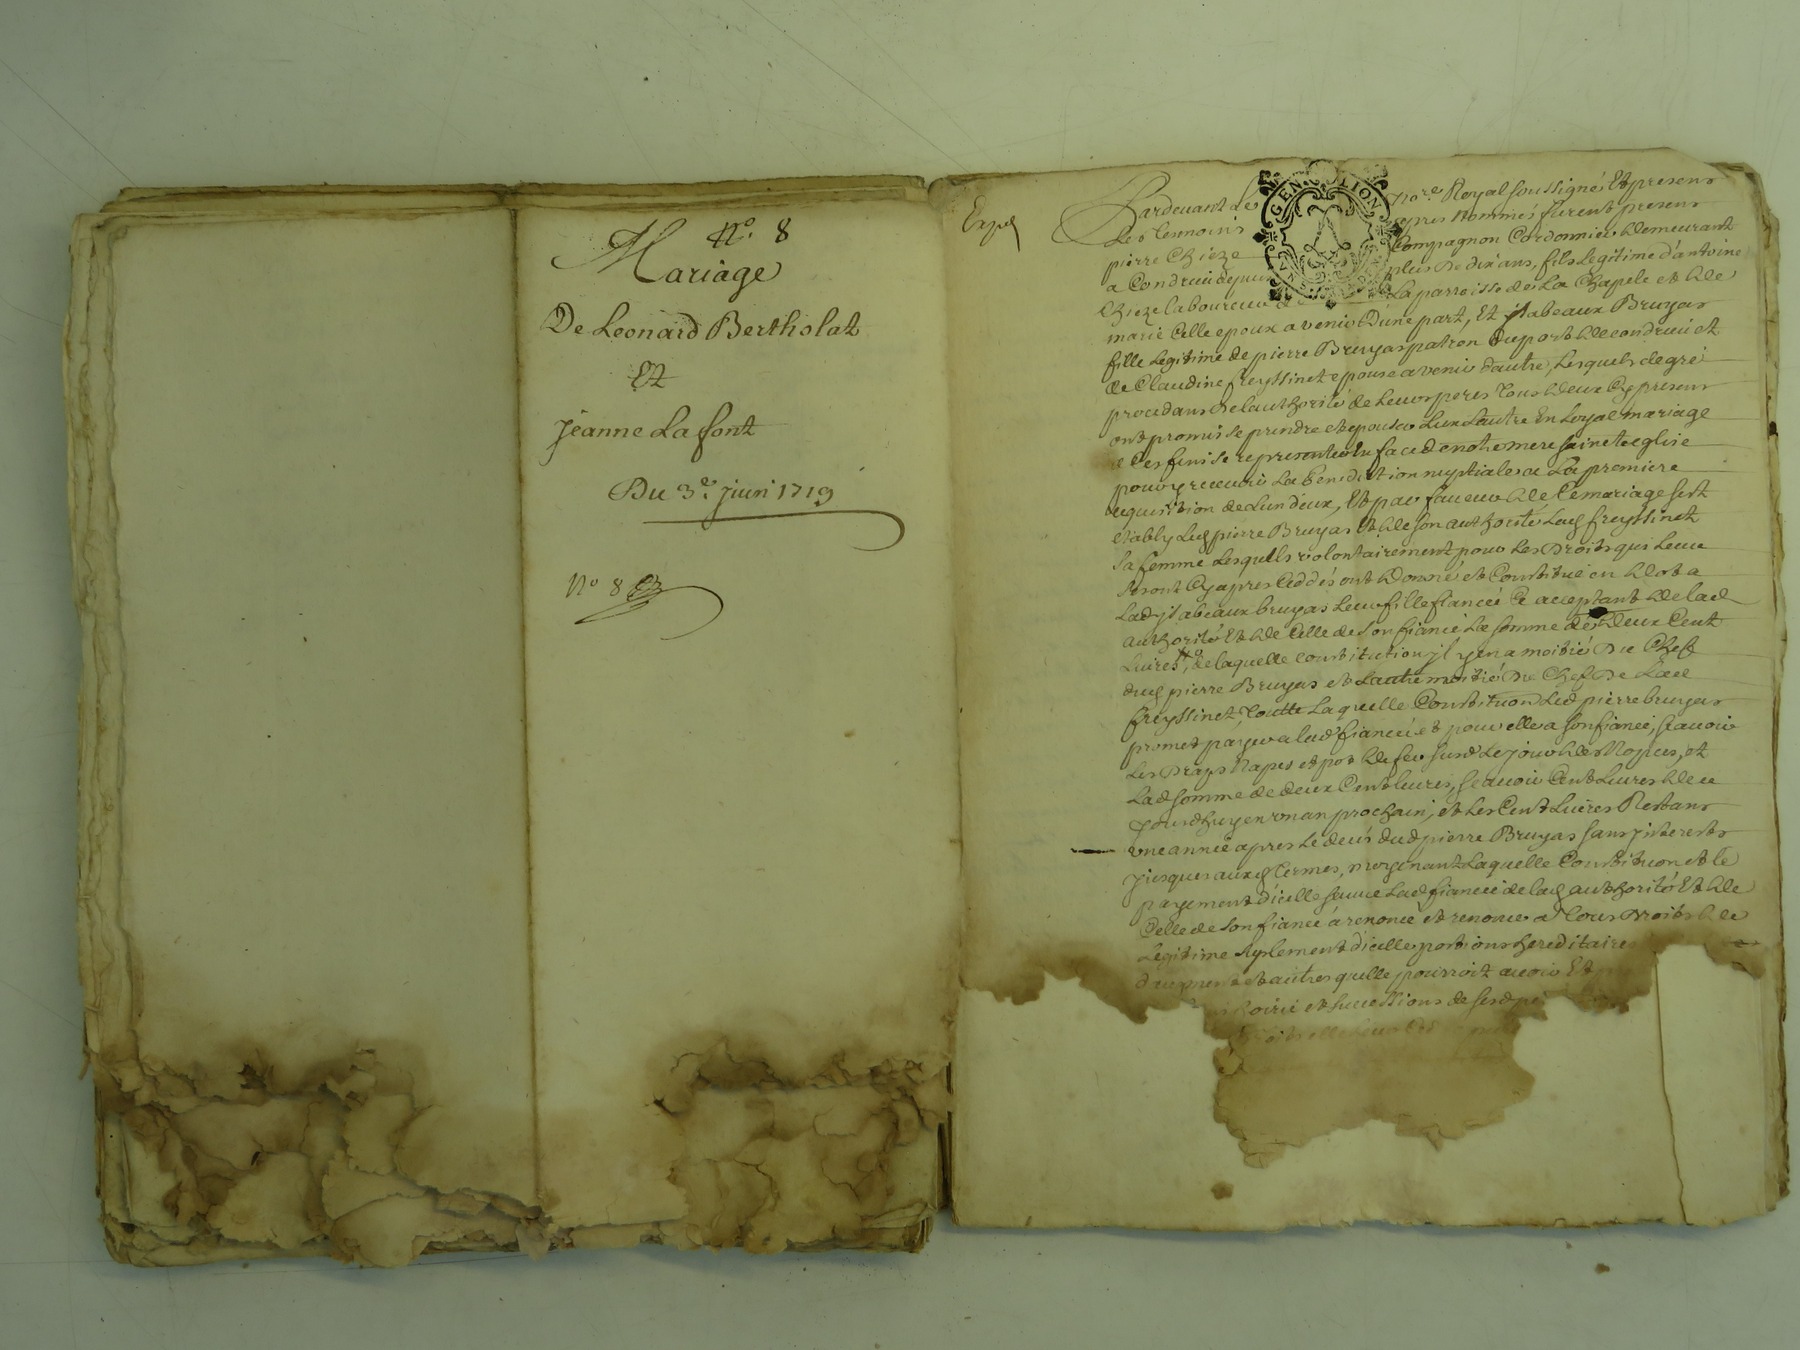 No. 8
Mariage
De Leonard Bertholat
Et
Jeanne Lafont
Du 3e. juin 1719
No 8
Expd
Pardevant Le nore Royal soussigné Et presens
Les temoins apres Nommés furent presens
pierre Chieze Compagnon Cordonnier demeurant
a Condrieu depuis plus de dix ans, fils Legitime d'antoine
Chieze laboureur de La parroisse de La Chapele et de
marie Celle epoux avenir Dune part, Et ysabeaux Bruyas
fille Legitime de pierre Bruyas patron du port de condrieu et
de Claudine freyssinet epouse avenir d'autre, Lesquels de gré
procedans de lauthorité de Leurs peres tous deux Cy presens
ont promis se prendre et epouser Lun Lautre En Loyal mariage
a Ces fins se representer En face de notre mere sainte eglise
pour y recevoir La benediction nuptiale a La premiere
requisition de Lun deux, Et pav faveur de Ce mariage sest
etably Led pierre Bruyas Et de son authorité Lad freyssinet
sa femme Lesquels volontairement pour Les droits qui Leur
seront Cy apres Ceddés ont donné et Constitué en dot a
Lad ysabeaux bruyas Leur fille fiancée Ce acceptant de lad
authorité Et de Celle de son fiancé La somme de deux Cent
Livres, de laquelle constitution jl y en a moitié du Chef
dud pierre Bruyas et Lautre moitié du Chef de Lad
freyssinet, toutte Laquelle Constitution Led pierre bruyas
promet payer a lad fiancée et pour elle a son fiancé, scavoir
Les draps Napes et pot de feu susd Le jour des Nopces, et
Lad somme de deux Cent livres, scavoir Cent Livres de ce
jourdhuy en un an prochain, et Les Cent Livres Restans
une année apres Le decés dud pierre Bruyas sans jnterests
jusques auxd termes, moyenant Laquelle Constitution et le
payement d'icelle Lad fiancée de lad authorité Et de
Celle de son fiancé a renoncé et renonce a tous droits de
Legitime suplement d'icelle portions hereditaires
et autres quelle pourroit avoir Et
hoirie et successions de sesd